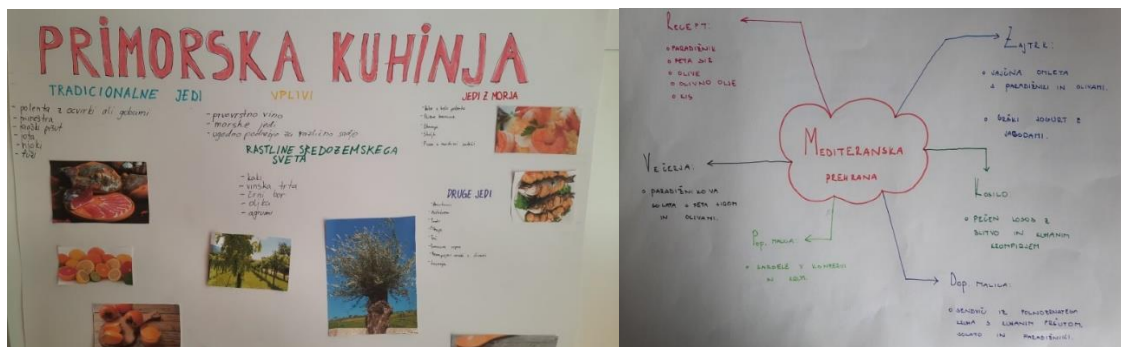 PRIMORSKA KUHINJA
TRADICIONALNE JEDI
- polenta z ocvirki ali gobami
- mineštra
- kraški pršut
- jota
- njoki
- fuži
VPLIVI
- prvovrstno vino
- morske jedi
- ugodno podnebje za različno sadje
RASTLINE SREDOZEMSKEGA
SVETA
- kaki
- vinska trta
- črni bor
- oljka
- agrumi
JEDI Z MORJA
DRUGE JEDI
RECEPT:
PARADIŽNIK
FETA SIR
OLIVE
OLIVNO OLJE
ZAJTRK:
JAJČNA OMLETA
S PARADIŽNIKI IN OLIVAMI.
GRŠKI JOGURT Z
JAGODAMI.
MEDITERANSKA
PREHRANA
VEČERJA:
PARADIŽNIKOVA
SOLATA S FETA SIROM
IN OLIVAMI.
KOSILO:
PEČEN LOSOS Z
BLITVO IN KUHANIM
KROMPIRJEM
POP. MALICA:
SARDELE V KONZERVI
IN
DOP. MALICA:
SENDVIČ IZ POLNOZRNATEGA
KRUHA S KUHANIM PRŠUTOM
SOLATO IN PARADIŽNIKI.